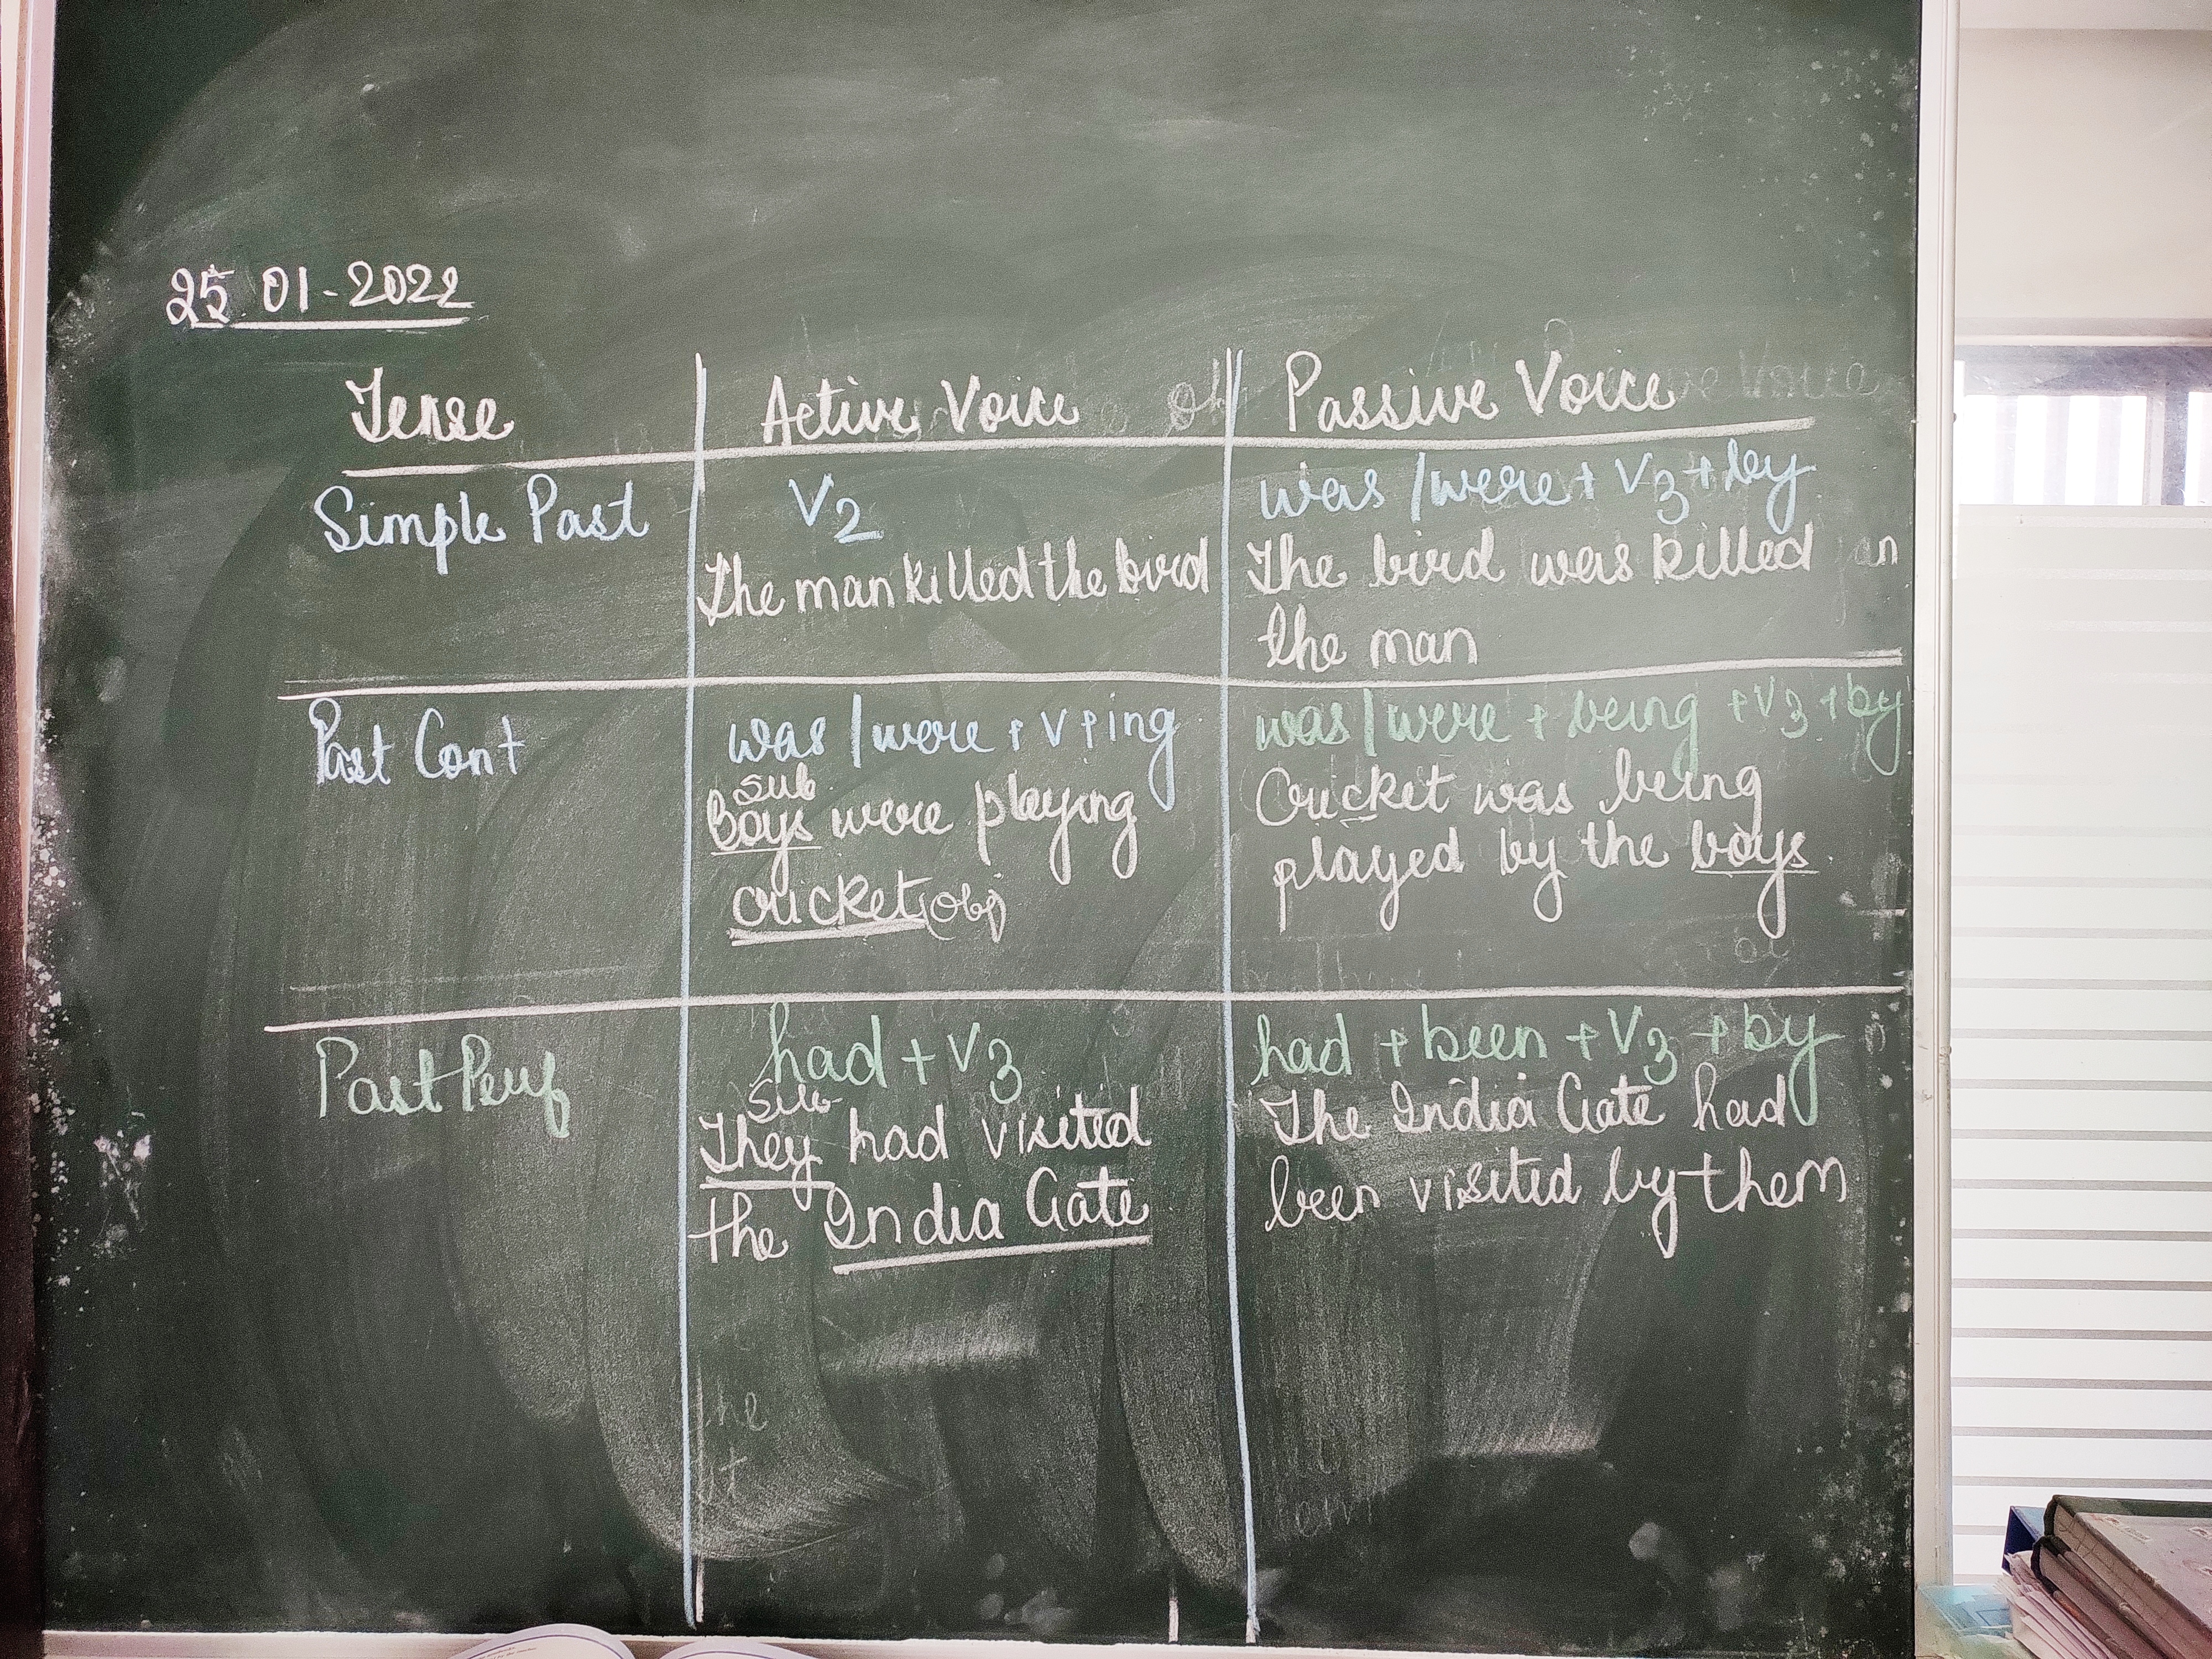 25 01-2022
Tense Active Voice Passive Voice
Simple Past V2 was / were + V3 + by
The man killed the bird The bird was killed
the man
Past Cont was / were + V + ing was / were + being + V3 + by
sub
Boys were playing Cricket was being
cricket (obj) played by the boys
Past Perf had + V3 had + been + V3 + by
Sub
They had visited The India Gate had
the India Gate been visited by them